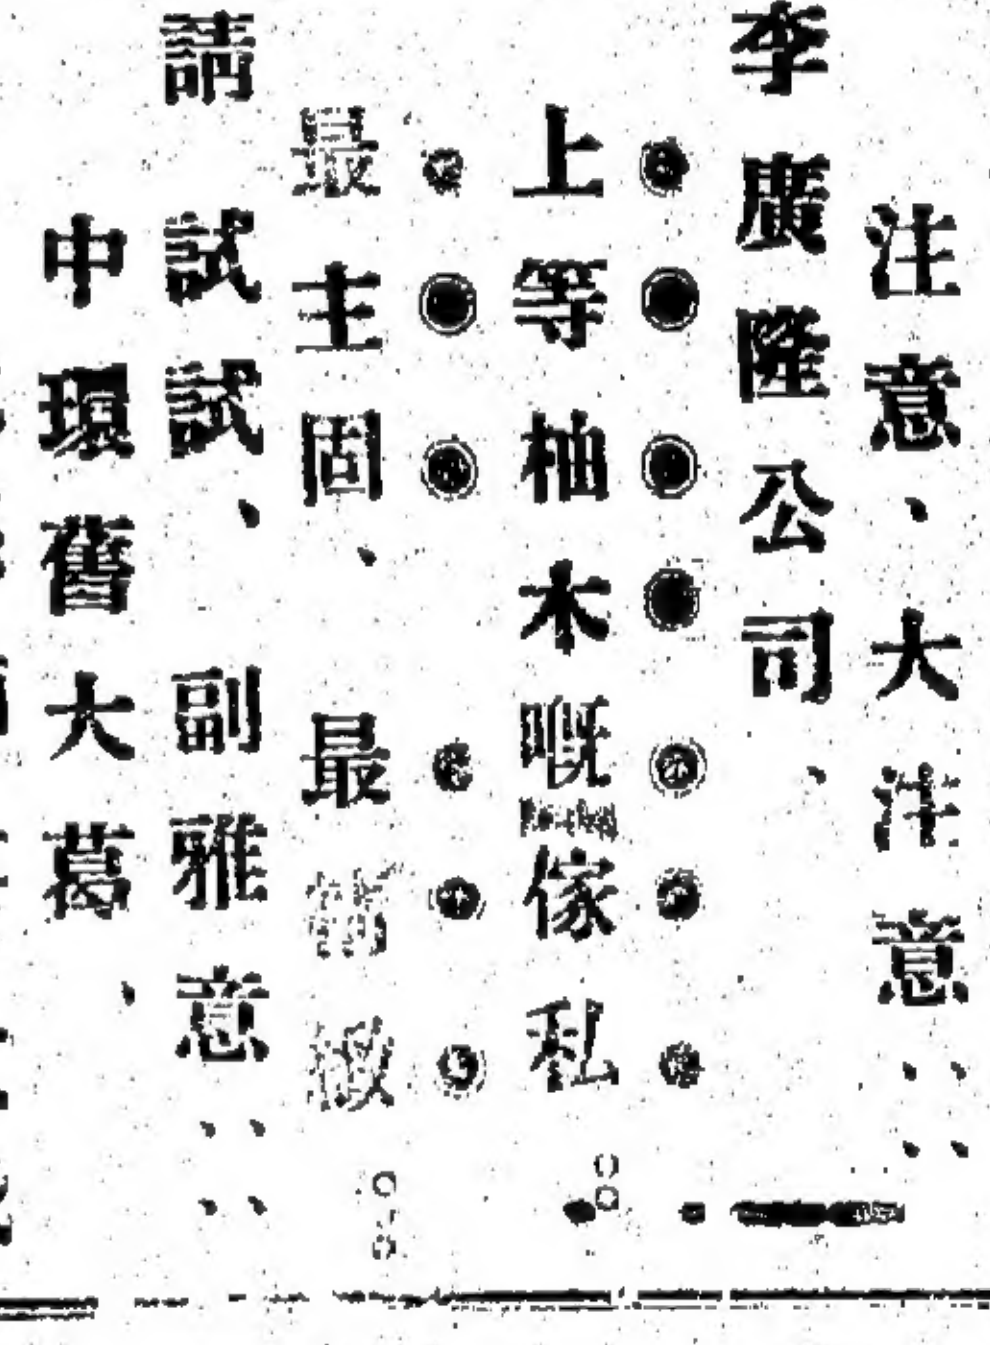 注意、大洋意：：
李廣隆公司、
上等柚木嘅傢私
最主固、最緻
請試試、副雅意：：
中環舊大葛、